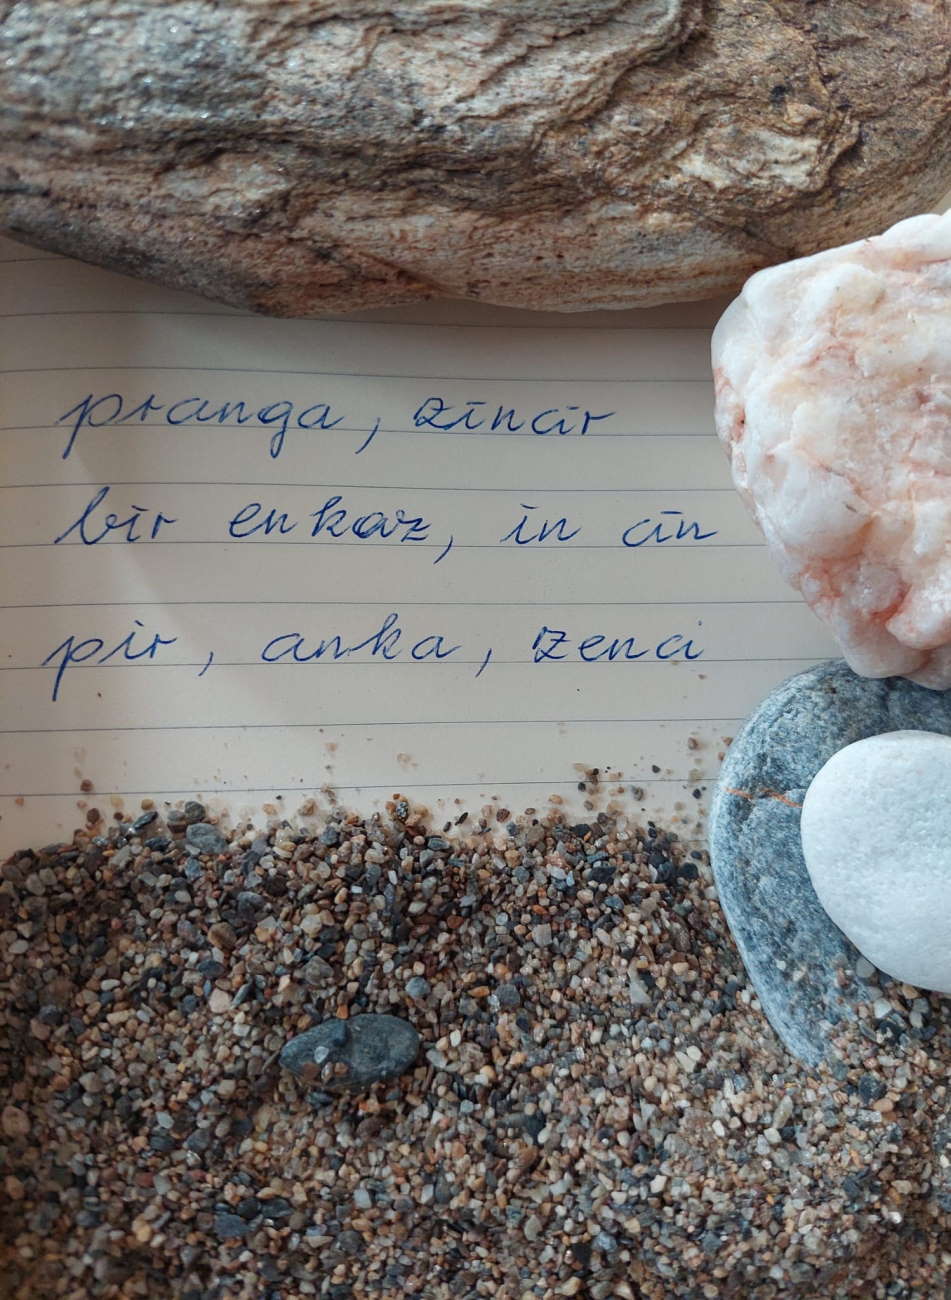 pranga, zincir
bir enkaz, in cin
pir, anka, zenci